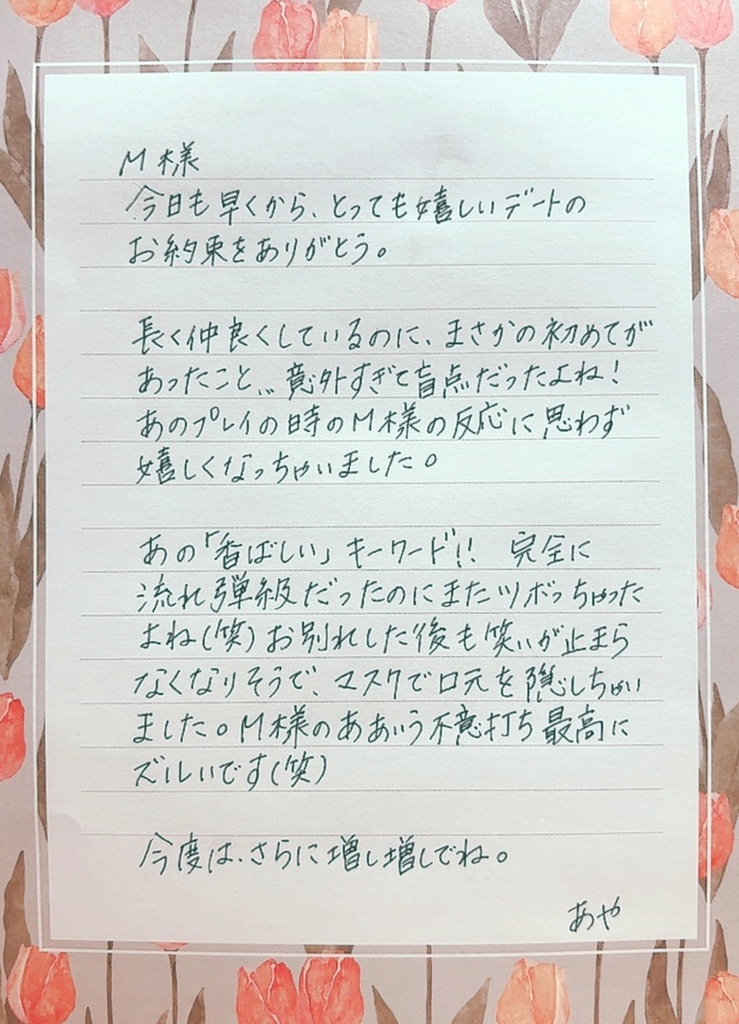 M様
今日も早くから、とっても嬉しいデートの
お約束をありがとう。
長く仲良くしているのに、まさかの初めてが
あったこと…意外すぎて盲点だったよね!
あのプレイの時のM様の反応に思わず
嬉しくなっちゃいました。
あの「香ばしい」キーワード!! 完全に
流れ弾級だったのにまたツボっちゃった
よね(笑)お別れした後も笑いが止まら
なくなりそうで、マスクで口元を隠しちゃい
ました。M様のああいう不意打ち最高に
ズルいです(笑)
今度は、さらに増し増しでね。
あや